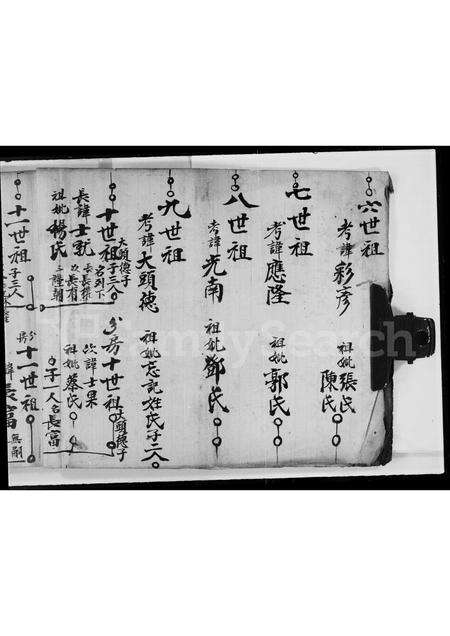 六世祖
考諱彩彥
祖妣張氏
陳氏
七世祖
考諱應隆
祖妣郭氏
八世祖
考諱光南
祖妣鄧氏
九世祖
考諱大頭德
祖妣忘記姓氏子二人
大頭德子
十世祖子三人
名列下
長諱士就
次長有
三謹朝
祖妣楊氏
分房十世祖
大頭德子
次諱士果
祖妣蔡氏
子一人名長富
十一世祖子三人
分房
十一世祖
諱長富
無嗣
FamilySearch